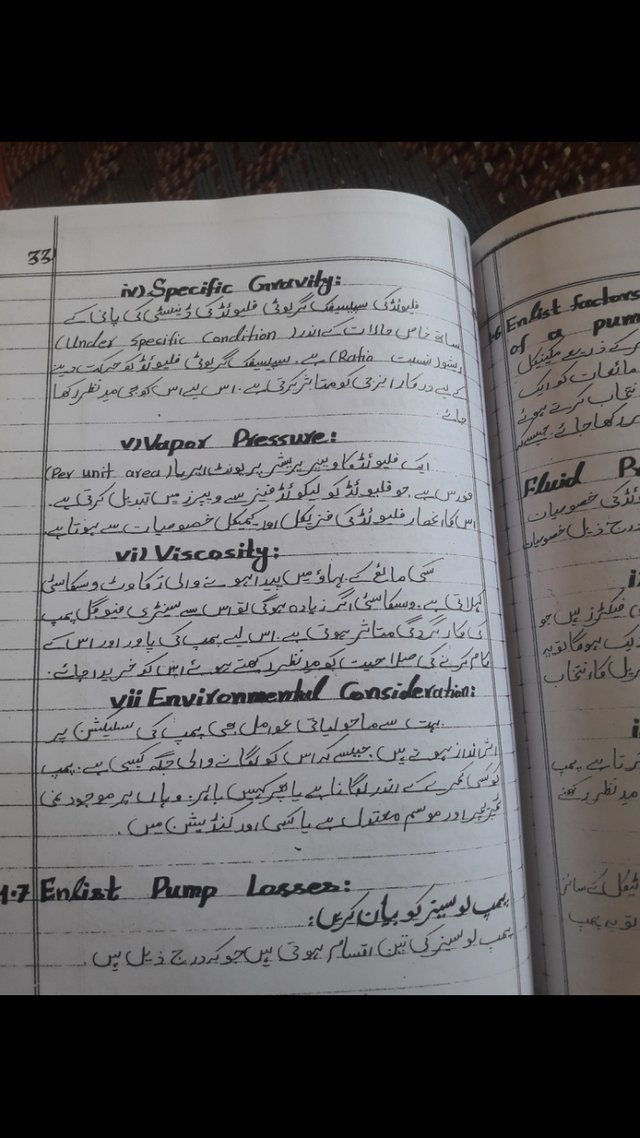 33
iv) Specific Gravity:
فلیوئڈ کی سپیسیفک گریوٹی فلیوئڈ کی ڈینسٹی کی پانی کے
ساتھ خاص حالات کے اندر (Under Specific Condition)
ریشو (نسبت Ratio) ہے۔ سپیسیفک گریوٹی فلیوئڈ کو حرکت دینے
کے لیے درکار انرجی کو متاثر کرتی ہے۔ اس لیے اس کو بھی مدِنظر رکھا
جائے۔
v) Vapor Pressure:
ایک فلیوئڈ کا ویپر پریشر پر یونٹ ایریا (Per unit area)
فورس ہے۔ جو فلیوئڈ کو لیکوئڈ فیز سے ویپرز میں تبدیل کرتی ہے۔
اس کا انحصار فلیوئڈ کی فزیکل اور کیمیکل خصوصیات سے ہوتا ہے۔
vi) Viscosity:
کسی مائع کے بہاؤ میں پیدا ہونے والی رکاوٹ وسکاسٹی
کہلاتی ہے۔ وسکاسٹی اگر زیادہ ہوگی تو اس سے سینٹری فیوگل پمپ
کی کارکردگی متاثر ہوتی ہے۔ اس لیے پمپ کی پاور اور اس کے
کام کرنے کی صلاحیت کو مدِنظر رکھتے ہوئے اس کو خریدا جائے۔
vii Environmental Consideration:
بہت سے ماحولیاتی عوامل بھی پمپ کی سلیکشن پر
اثر انداز ہوتے ہیں۔ جیسے کہ اس کو لگانے والی جگہ کیسی ہے۔ پمپ
کو کسی کمرے کے اندر لگانا ہے یا پھر کہیں باہر۔ وہاں پر موجود نمی
ٹمپریچر اور موسم معتدل ہے یا کسی اور کنڈیشن میں۔
4.7 Enlist Pump Losses:
پمپ لوسیز کو بیان کریں:
پمپ لوسیز کی تین اقسام ہوتی ہیں جو کہ درج ذیل ہیں۔
Enlist factors
of a pum
کے ذریعے مکینیکل
مائعات کو ایک
کرتے ہوئے
رکھا جائے۔ جیسے کہ
Fluid Pr
کی خصوصیات
درج ذیل خصوصیات
i
فیکٹرز ہیں جو
ہوگا تو یہ
کا انتخاب
i
کرتا ہے۔ پمپ
مدِنظر رکھتے
کے سائز
تو یہ پمپ